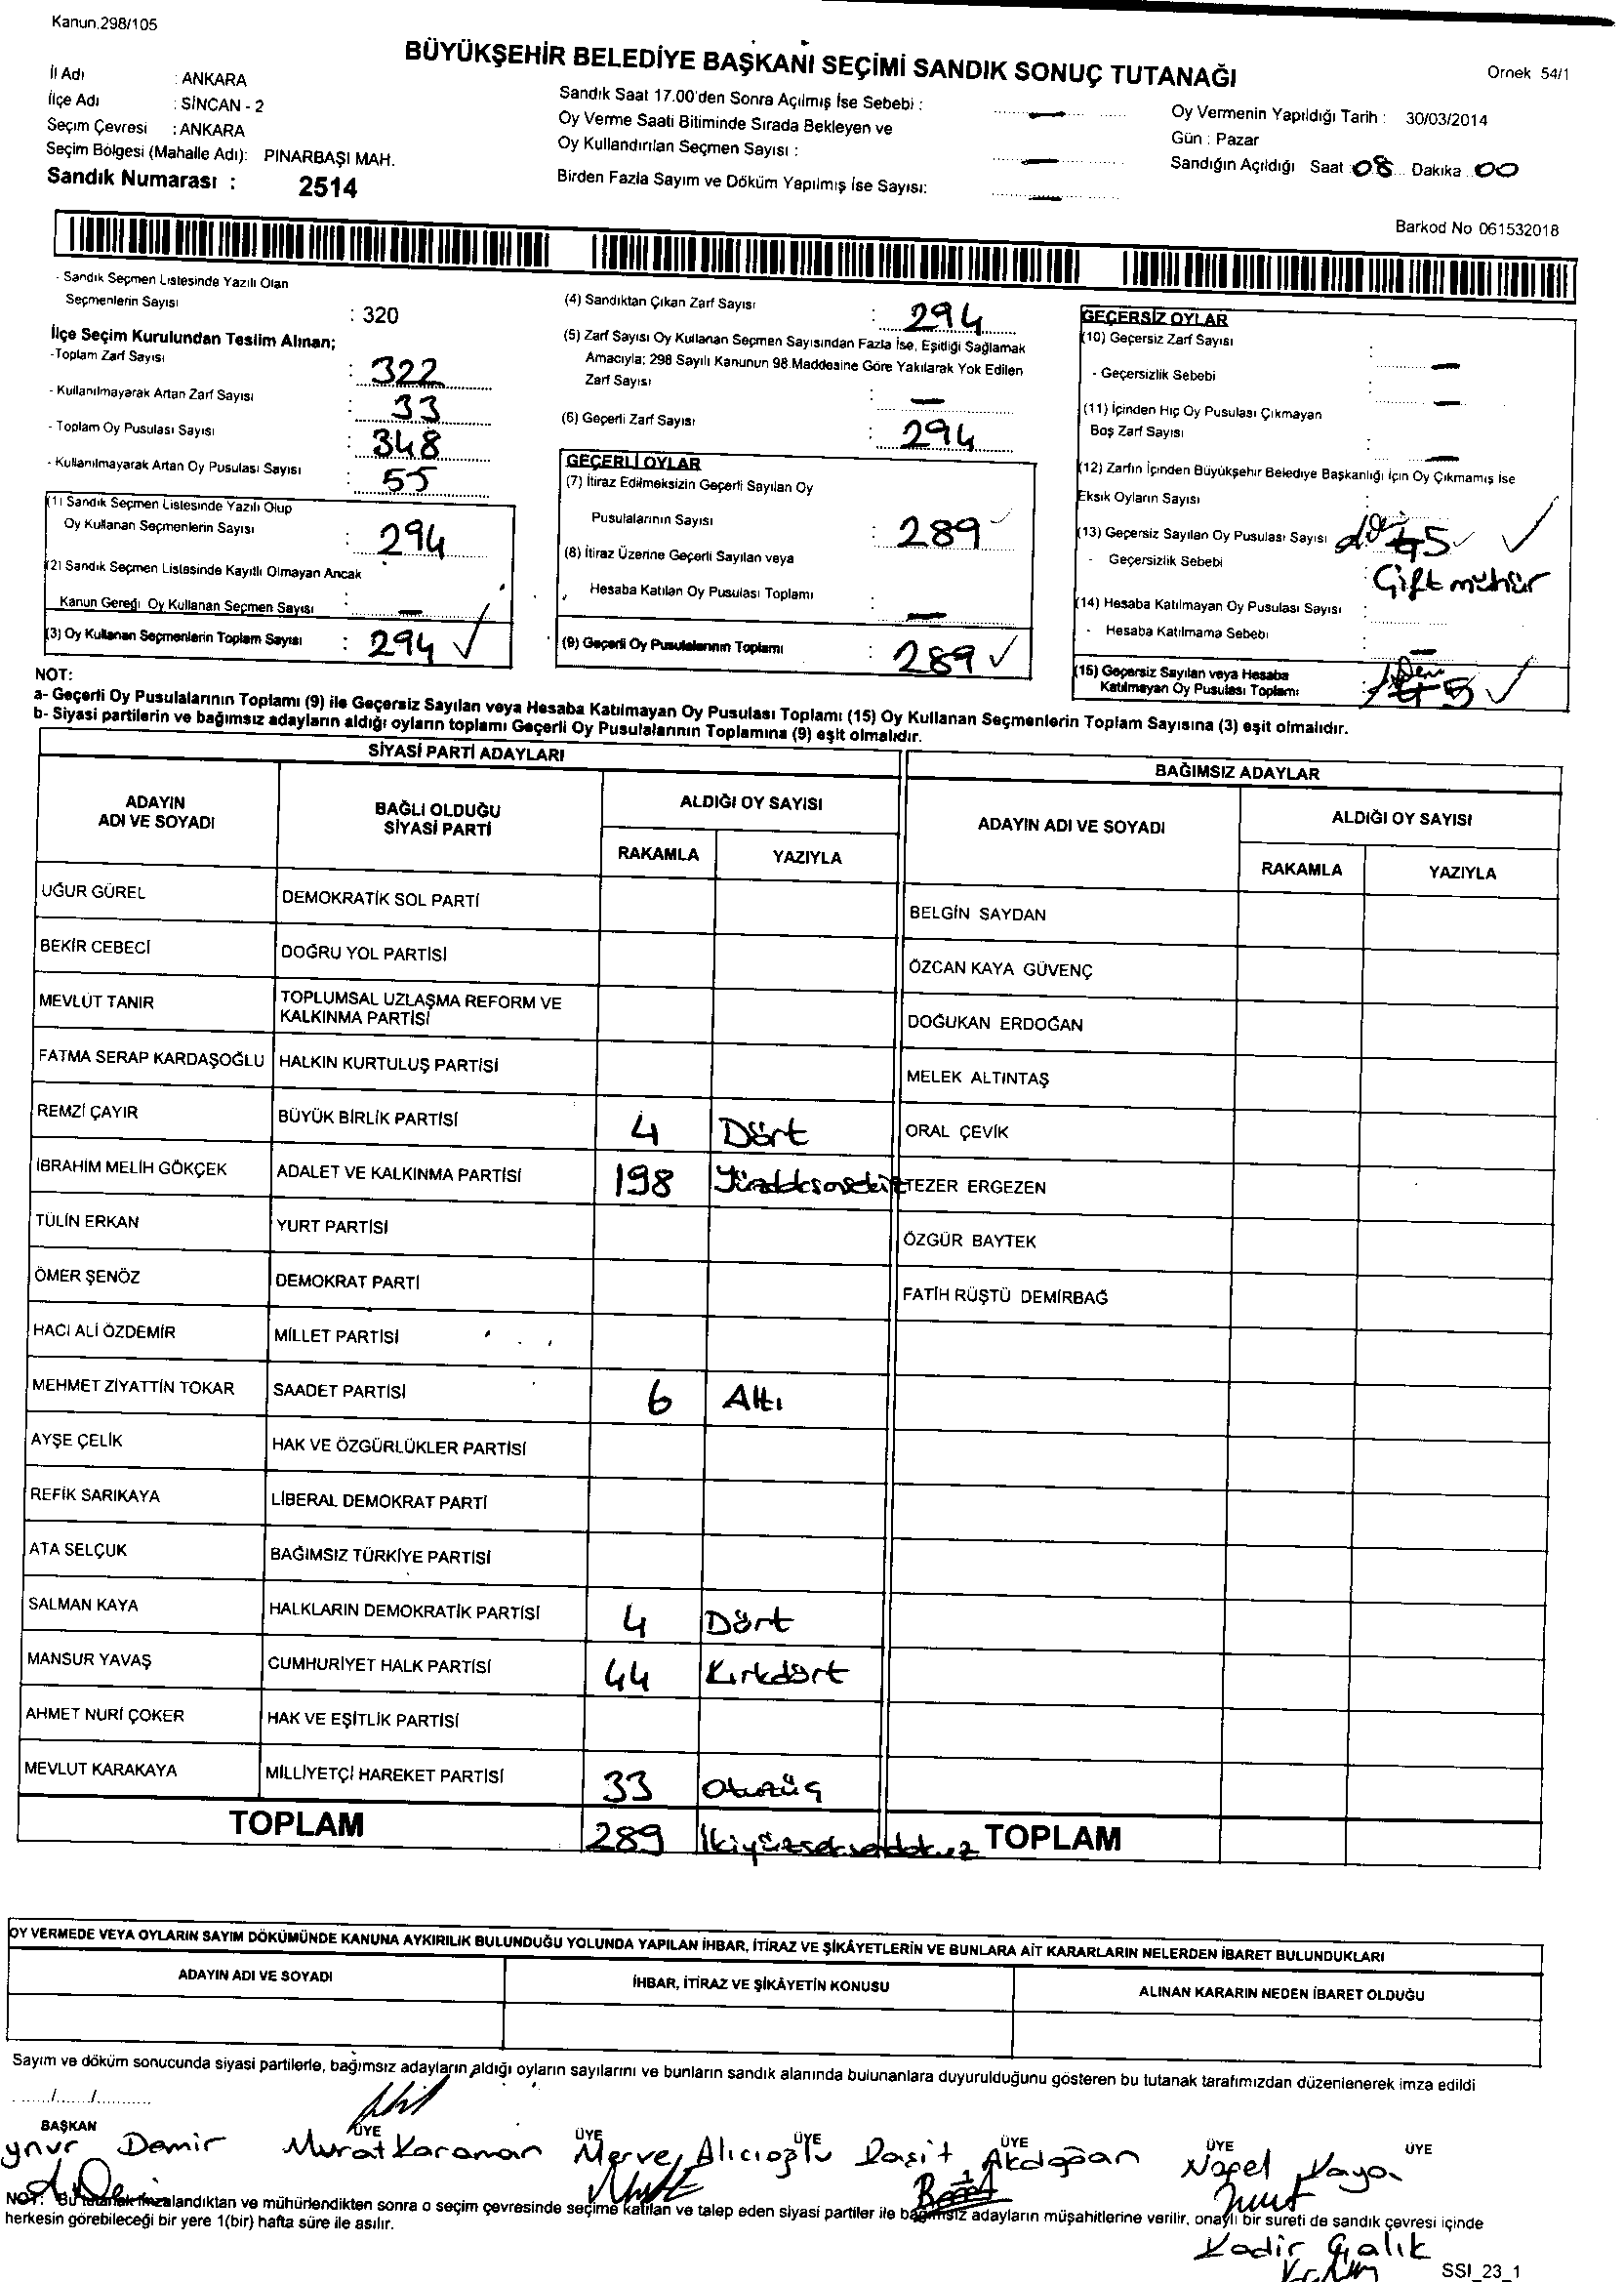 Kanun.298/105
BÜYÜKŞEHİR BELEDİYE BAŞKANI SEÇİMİ SANDIK SONUÇ TUTANAĞI
Örnek 54/1
İl Adı : ANKARA
İlçe Adı : SİNCAN - 2
Seçim Çevresi : ANKARA
Seçim Bölgesi (Mahalle Adı): PINARBAŞI MAH.
Sandık Numarası : 2514
Sandık Saat 17.00'den Sonra Açılmış İse Sebebi : —
Oy Verme Saati Bitiminde Sırada Bekleyen ve
Oy Kullandırılan Seçmen Sayısı : —
Birden Fazla Sayım ve Döküm Yapılmış İse Sayısı: —
Oy Vermenin Yapıldığı Tarih : 30/03/2014
Gün : Pazar
Sandığın Açıldığı Saat : 08 Dakika 00
Barkod No 061532018
- Sandık Seçmen Listesinde Yazılı Olan
Seçmenlerin Sayısı : 320
İlçe Seçim Kurulundan Teslim Alınan;
-Toplam Zarf Sayısı : 322
- Kullanılmayarak Artan Zarf Sayısı : 33
- Toplam Oy Pusulası Sayısı : 348
- Kullanılmayarak Artan Oy Pusulası Sayısı : 55
(1) Sandık Seçmen Listesinde Yazılı Olup
Oy Kullanan Seçmenlerin Sayısı : 294
(2) Sandık Seçmen Listesinde Kayıtlı Olmayan Ancak
Kanun Gereği Oy Kullanan Seçmen Sayısı : —
(3) Oy Kullanan Seçmenlerin Toplam Sayısı : 294 ✓
(4) Sandıktan Çıkan Zarf Sayısı : 294
(5) Zarf Sayısı Oy Kullanan Seçmen Sayısından Fazla İse, Eşitliği Sağlamak
Amacıyla; 298 Sayılı Kanunun 98.Maddesine Göre Yakılarak Yok Edilen
Zarf Sayısı : —
(6) Geçerli Zarf Sayısı : 294
GEÇERLİ OYLAR
(7) İtiraz Edilmeksizin Geçerli Sayılan Oy
Pusulalarının Sayısı : 289 ✓
(8) İtiraz Üzerine Geçerli Sayılan veya
Hesaba Katılan Oy Pusulası Toplamı : —
(9) Geçerli Oy Pusulalarının Toplamı : 289 ✓
GEÇERSİZ OYLAR
(10) Geçersiz Zarf Sayısı : —
- Geçersizlik Sebebi : —
(11) İçinden Hiç Oy Pusulası Çıkmayan
Boş Zarf Sayısı : —
(12) Zarfın İçinden Büyükşehir Belediye Başkanlığı İçin Oy Çıkmamış İse
Eksik Oyların Sayısı :
(13) Geçersiz Sayılan Oy Pusulası Sayısı 5 ✓
- Geçersizlik Sebebi : Çift mühür
(14) Hesaba Katılmayan Oy Pusulası Sayısı : —
- Hesaba Katılmama Sebebi : —
(15) Geçersiz Sayılan veya Hesaba
Katılmayan Oy Pusulası Toplamı : 5 ✓
NOT:
a- Geçerli Oy Pusulalarının Toplamı (9) ile Geçersiz Sayılan veya Hesaba Katılmayan Oy Pusulası Toplamı (15) Oy Kullanan Seçmenlerin Toplam Sayısına (3) eşit olmalıdır.
b- Siyasi partilerin ve bağımsız adayların aldığı oyların toplamı Geçerli Oy Pusulalarının Toplamına (9) eşit olmalıdır.
SİYASİ PARTİ ADAYLARI
ADAYIN ADI VE SOYADI
BAĞLI OLDUĞU SİYASİ PARTİ
ALDIĞI OY SAYISI
RAKAMLA YAZIYLA
UĞUR GÜREL DEMOKRATİK SOL PARTİ
BEKİR CEBECİ DOĞRU YOL PARTİSİ
MEVLÜT TANIR TOPLUMSAL UZLAŞMA REFORM VE KALKINMA PARTİSİ
FATMA SERAP KARDAŞOĞLU HALKIN KURTULUŞ PARTİSİ
REMZİ ÇAYIR BÜYÜK BİRLİK PARTİSİ 4 Dört
İBRAHİM MELİH GÖKÇEK ADALET VE KALKINMA PARTİSİ 198
TÜLİN ERKAN YURT PARTİSİ
ÖMER ŞENÖZ DEMOKRAT PARTİ
HACI ALİ ÖZDEMİR MİLLET PARTİSİ
MEHMET ZİYATTİN TOKAR SAADET PARTİSİ 6 Altı
AYŞE ÇELİK HAK VE ÖZGÜRLÜKLER PARTİSİ
REFİK SARIKAYA LİBERAL DEMOKRAT PARTİ
ATA SELÇUK BAĞIMSIZ TÜRKİYE PARTİSİ
SALMAN KAYA HALKLARIN DEMOKRATİK PARTİSİ 4 Dört
MANSUR YAVAŞ CUMHURİYET HALK PARTİSİ 44 Kırkdört
AHMET NURİ ÇOKER HAK VE EŞİTLİK PARTİSİ
MEVLUT KARAKAYA MİLLİYETÇİ HAREKET PARTİSİ 33 Otuzüç
TOPLAM 289 İkiyüzseksendokuz
BAĞIMSIZ ADAYLAR
ADAYIN ADI VE SOYADI
ALDIĞI OY SAYISI
RAKAMLA YAZIYLA
BELGİN SAYDAN
ÖZCAN KAYA GÜVENÇ
DOĞUKAN ERDOĞAN
MELEK ALTINTAŞ
ORAL ÇEVİK
TEZER ERGEZEN
ÖZGÜR BAYTEK
FATİH RÜŞTÜ DEMİRBAĞ
TOPLAM
OY VERMEDE VEYA OYLARIN SAYIM DÖKÜMÜNDE KANUNA AYKIRILIK BULUNDUĞU YOLUNDA YAPILAN İHBAR, İTİRAZ VE ŞİKÂYETLERİN VE BUNLARA AİT KARARLARIN NELERDEN İBARET BULUNDUKLARI
ADAYIN ADI VE SOYADI
İHBAR, İTİRAZ VE ŞİKÂYETİN KONUSU
ALINAN KARARIN NEDEN İBARET OLDUĞU
Sayım ve döküm sonucunda siyasi partilerle, bağımsız adayların aldığı oyların sayılarını ve bunların sandık alanında bulunanlara duyurulduğunu gösteren bu tutanak tarafımızdan düzenlenerek imza edildi
....../....../............
BAŞKAN ÜYE ÜYE ÜYE ÜYE ÜYE ÜYE
ynur Demir Murat Karaman Merve Alıcıoğlu Raşit Akdoğan Nazel Kaya
NOT: Bu tutanak imzalandıktan ve mühürlendikten sonra o seçim çevresinde seçime katılan ve talep eden siyasi partiler ile bağımsız adayların müşahitlerine verilir, onaylı bir sureti de sandık çevresi içinde
herkesin görebileceği bir yere 1(bir) hafta süre ile asılır.
Kadir Çalık
SSI_23_1